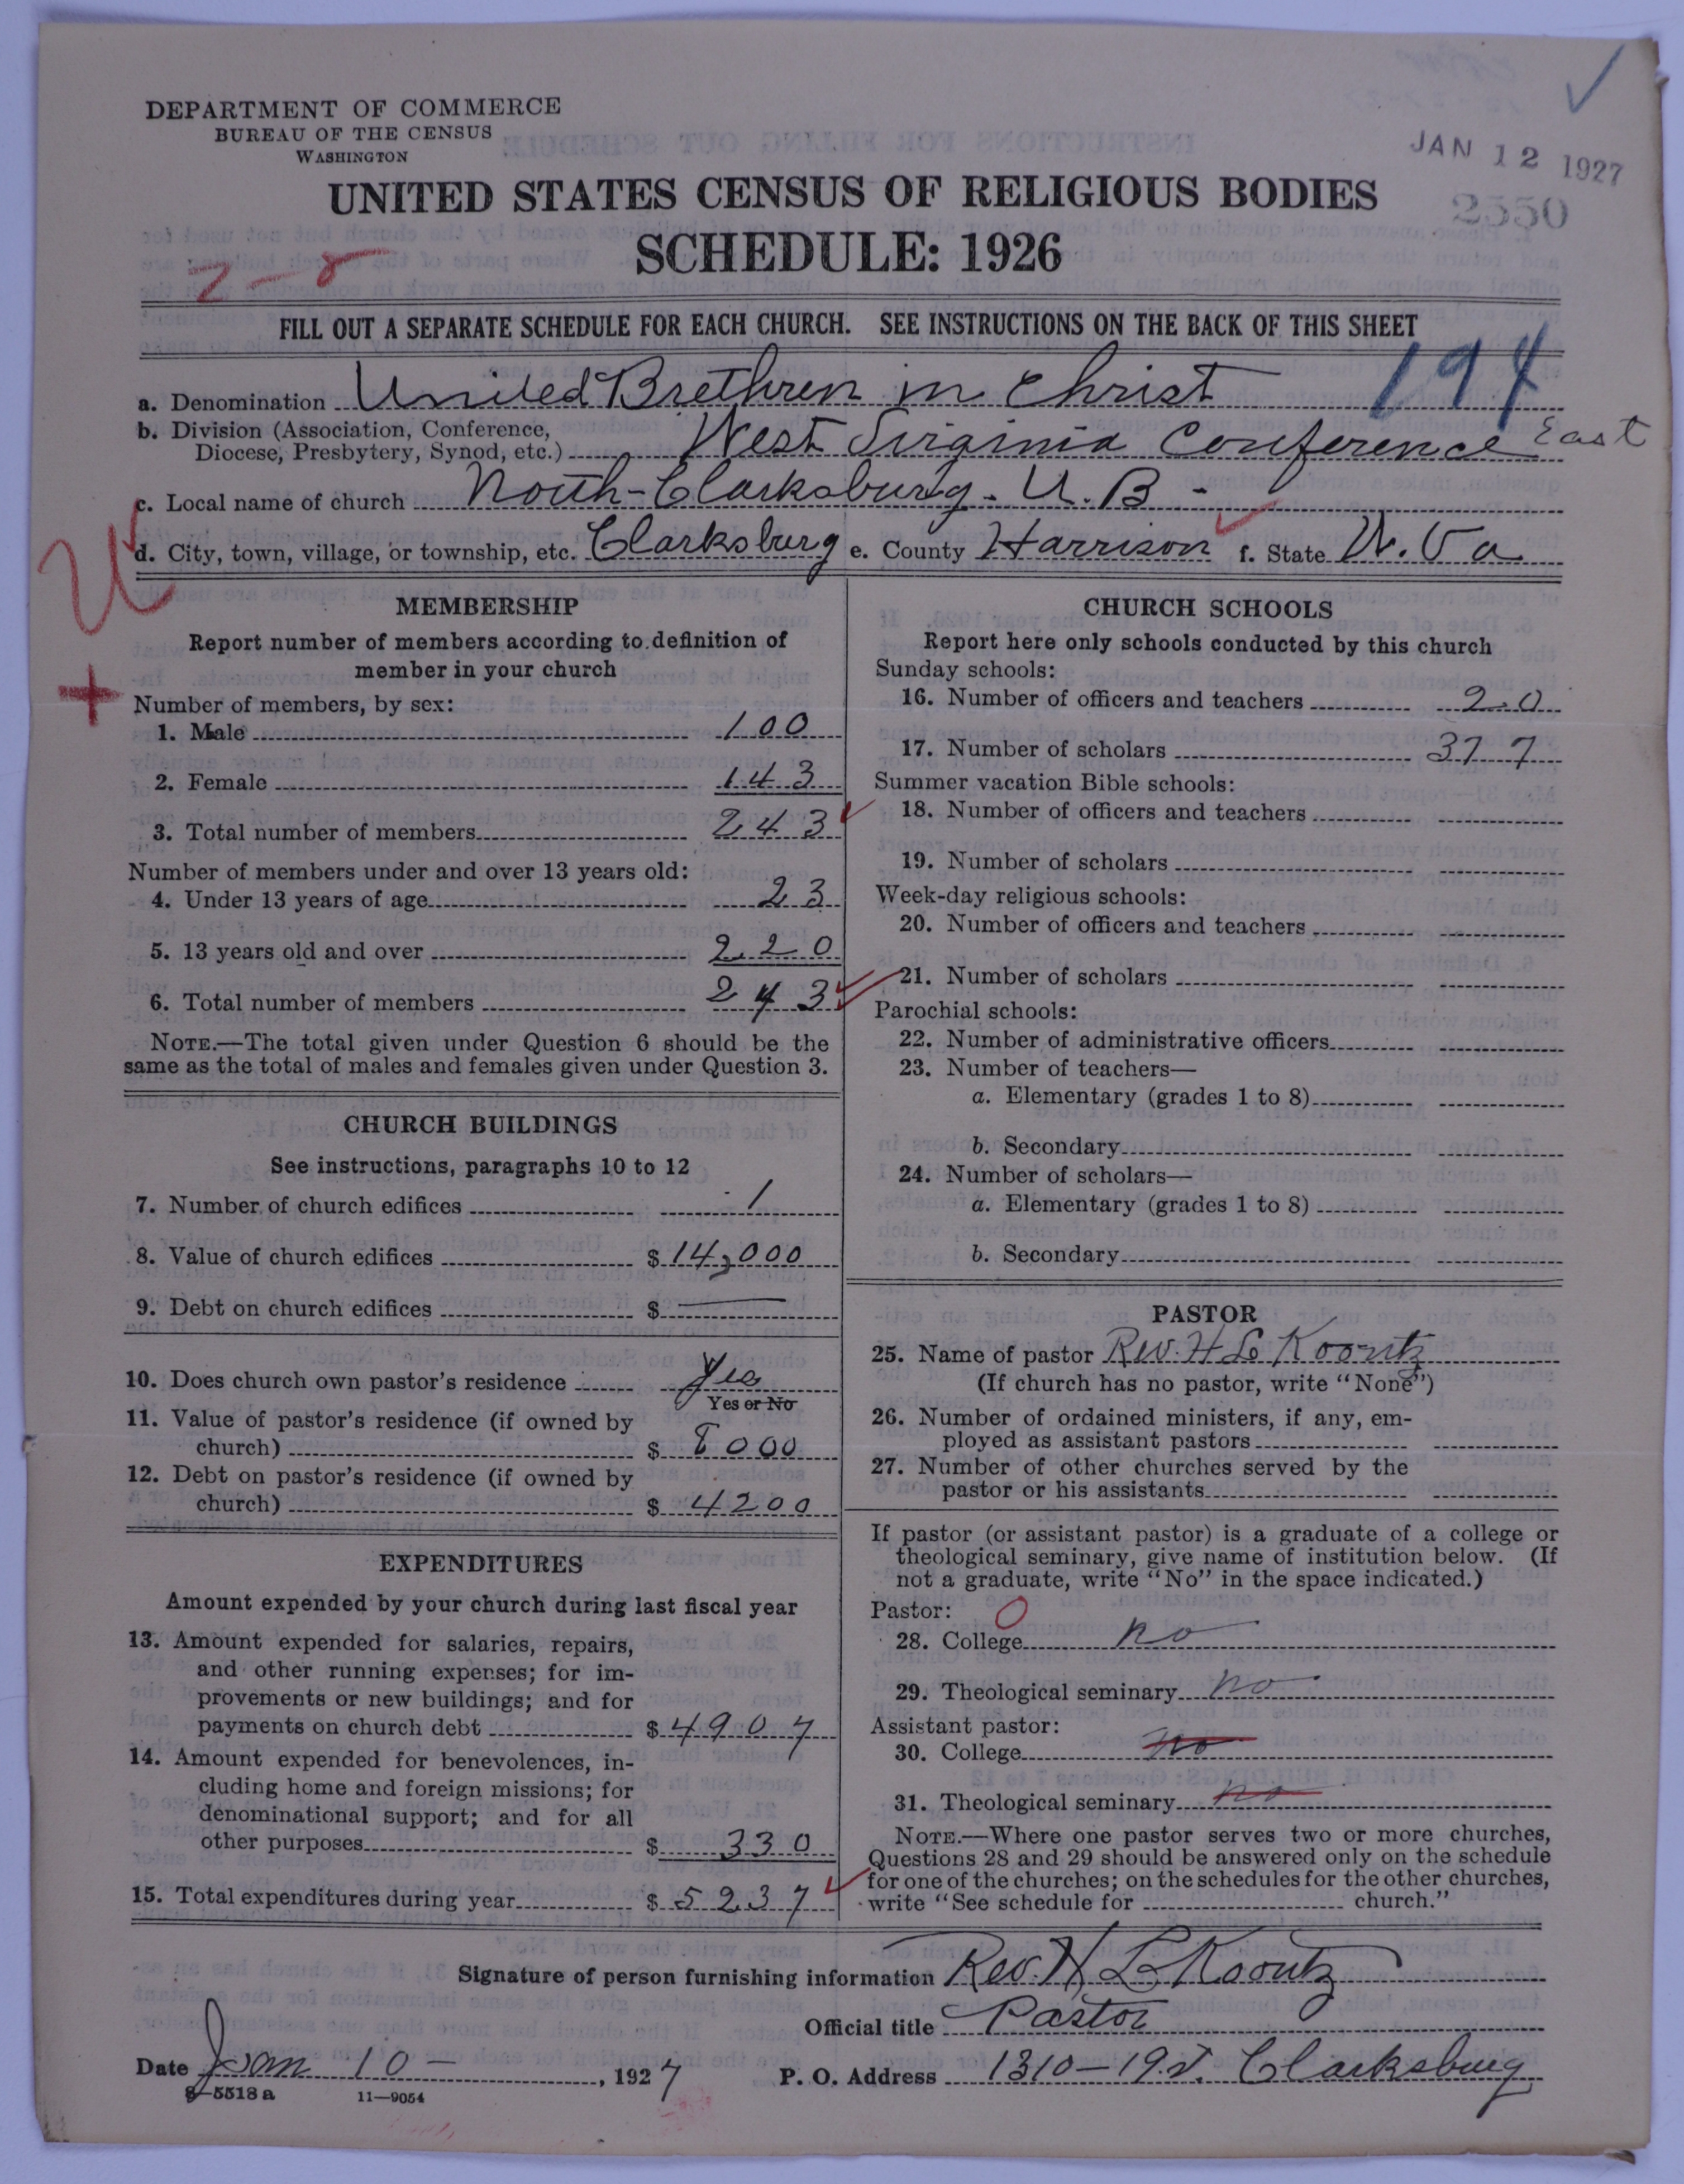 DEPARTMENT OF COMMERCE
BUREAU OF THE CENSUS
WASHINGTON
JAN 12 1927
2550
UNITED STATES CENSUS OF RELIGIOUS BODIES
SCHEDULE: 1926
2-8
FILL OUT A SEPARATE SCHEDULE FOR EACH CHURCH. SEE INSTRUCTIONS ON THE BACK OF THIS SHEET
194
a. Denomination United Brethren in Christ
b. Division (Association, Conference,
Diocese, Presbytery, Synod, etc.) West Virginia Conference East
c. Local name of church North-Clarksburg. U.B-
d. City, town, village, or township, etc. Clarksburg e. County Harrison f. State W. Va
MEMBERSHIP
Report number of members according to definition of
member in your church
Number of members, by sex:
1. Male 100
2. Female 143
3. Total number of members 243
Number of members under and over 13 years old:
4. Under 13 years of age 23
5. 13 years old and over 220
6. Total number of members 243
NOTE.—The total given under Question 6 should be the
same as the total of males and females given under Question 3.
CHURCH BUILDINGS
See instructions, paragraphs 10 to 12
7. Number of church edifices 1
8. Value of church edifices $14,000
9. Debt on church edifices $ —
10. Does church own pastor's residence Yes
Yes or No
11. Value of pastor's residence (if owned by
church) $ 8000
12. Debt on pastor's residence (if owned by
church) $ 4200
EXPENDITURES
Amount expended by your church during last fiscal year
13. Amount expended for salaries, repairs,
and other running expenses; for im-
provements or new buildings; and for
payments on church debt $4907
14. Amount expended for benevolences, in-
cluding home and foreign missions; for
denominational support; and for all
other purposes $ 330
15. Total expenditures during year $ 5237
CHURCH SCHOOLS
Report here only schools conducted by this church
Sunday schools:
16. Number of officers and teachers 20
17. Number of scholars 377
Summer vacation Bible schools:
18. Number of officers and teachers
19. Number of scholars
Week-day religious schools:
20. Number of officers and teachers
21. Number of scholars
Parochial schools:
22. Number of administrative officers
23. Number of teachers—
a. Elementary (grades 1 to 8)
b. Secondary
24. Number of scholars—
a. Elementary (grades 1 to 8)
b. Secondary
PASTOR
25. Name of pastor Rev. H L Koontz
(If church has no pastor, write "None")
26. Number of ordained ministers, if any, em-
ployed as assistant pastors
27. Number of other churches served by the
pastor or his assistants
If pastor (or assistant pastor) is a graduate of a college or
theological seminary, give name of institution below. (If
not a graduate, write "No" in the space indicated.)
Pastor: 0
28. College no
29. Theological seminary no
Assistant pastor:
30. College no
31. Theological seminary no
NOTE.—Where one pastor serves two or more churches,
Questions 28 and 29 should be answered only on the schedule
for one of the churches; on the schedules for the other churches,
write "See schedule for church."
Signature of person furnishing information Rev. H L Koontz
Official title Pastor
Date Jan 10 - , 1927 P. O. Address 1310-19.St. Clarksburg
8-5518 a 11-9054